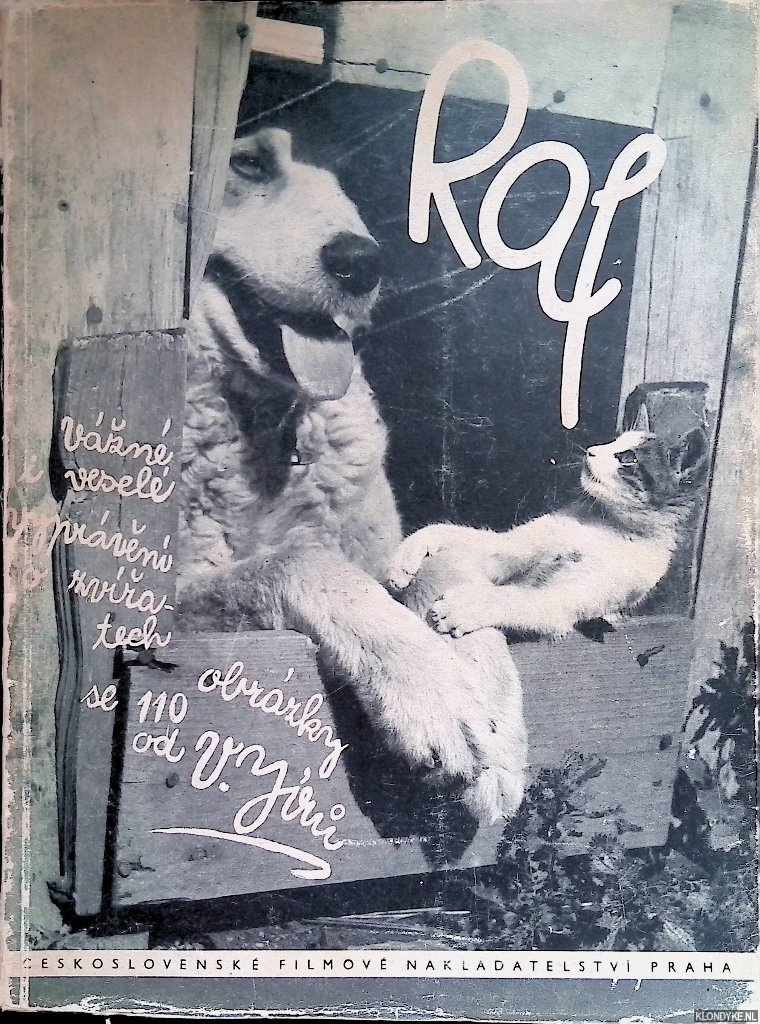 Raj
vážné
i veselé
vyprávění
o zvířa-
tech
se 110 obrázky
od V. Jírů
ČESKOSLOVENSKÉ FILMOVÉ NAKLADATELSTVÍ PRAHA
KLONDYKE.NL